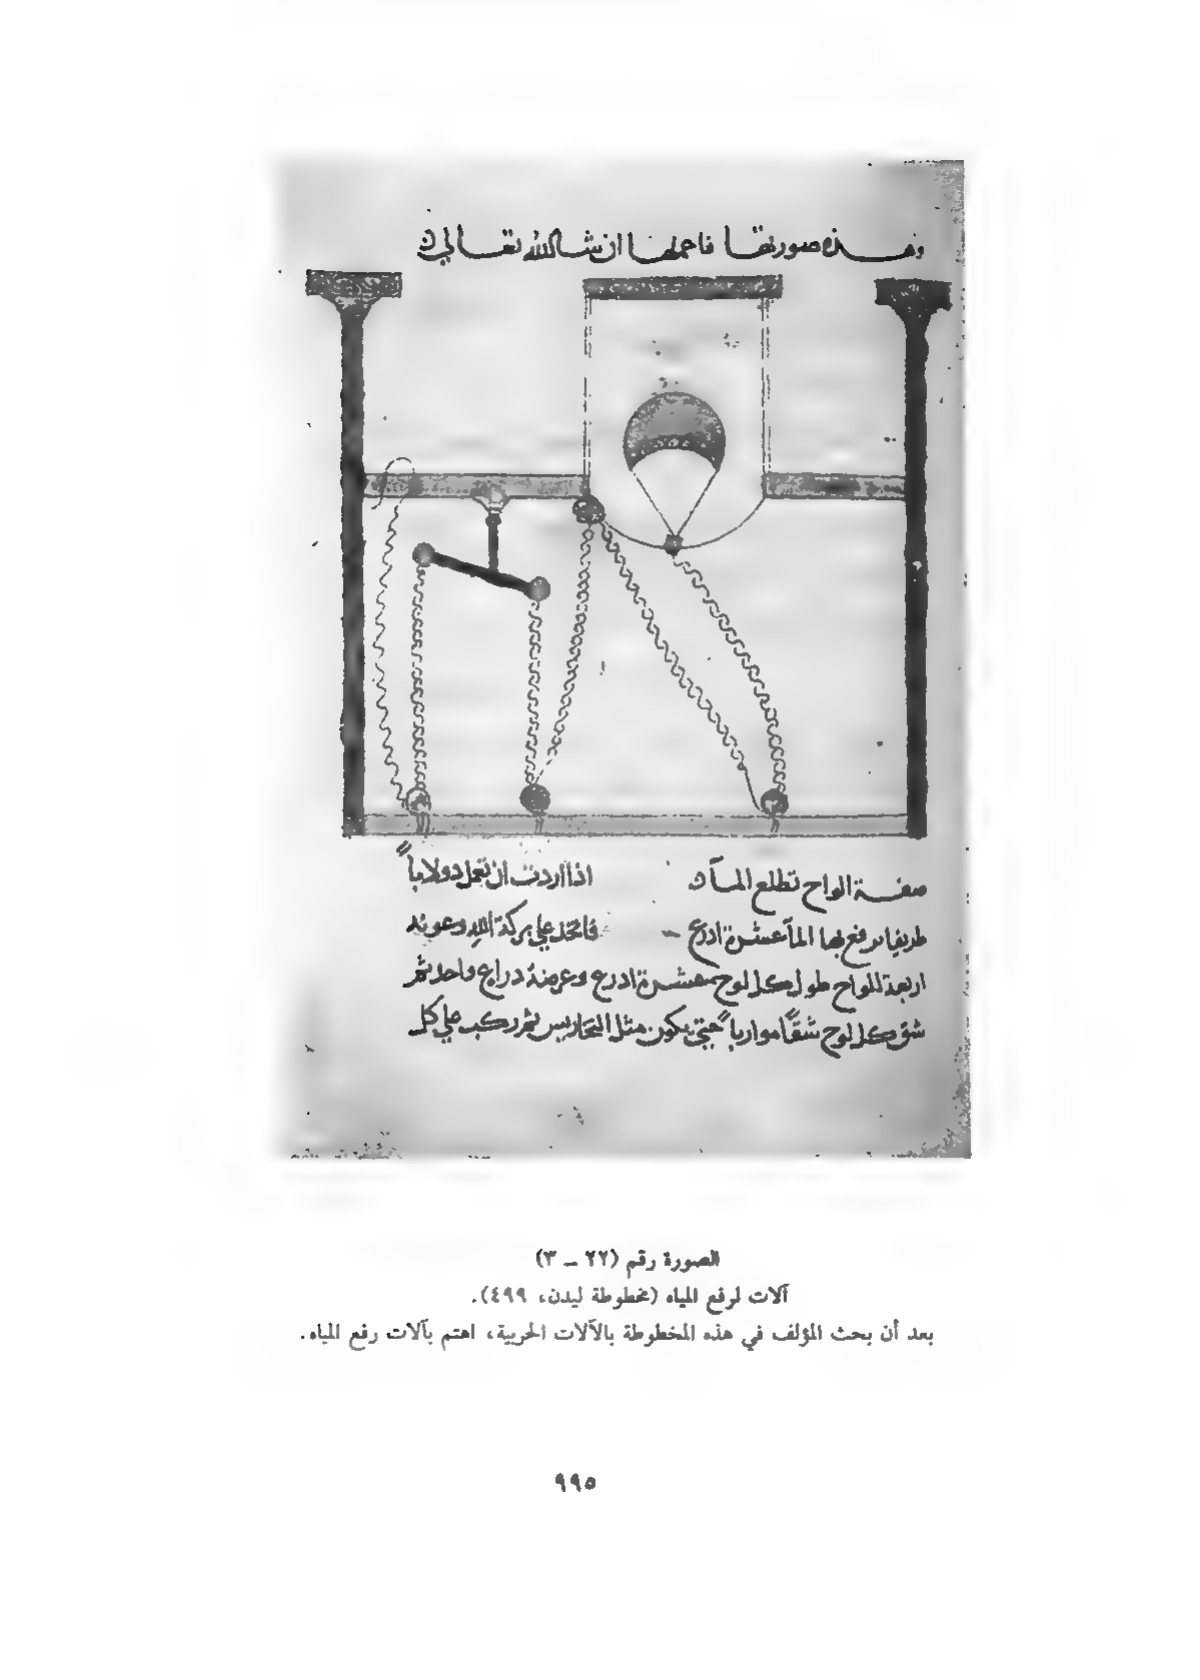 وهـــذه صورتها فاعملها ان شا الله تعـــالي
صفـــة الواح تطلع المـــآ اذا اردت ان تعمل دولاباً
طريفا يرفع بها المآ عشرة ادرع فاتخذ علي بركة الله وعونه
اربعة الواح طول كل لوح عشرة ادرع وعرضه دراع واحد ثم
شق كل لوح شقاً موارباً حتي يكون مثل التحاريس ثم ركب علي كل
الصورة رقم (٢٢ ــ ٣)
آلات لرفع المياه (مخطوطة ليدن، ٤٩٩).
بعد أن بحث المؤلف في هذه المخطوطة بالآلات الحربية، اهتم بآلات رفع المياه.
٩٩٥